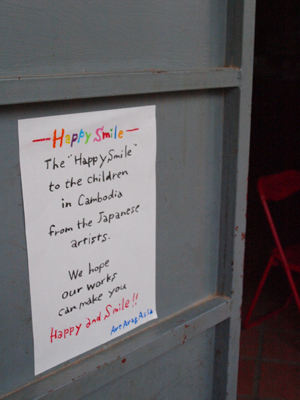 — Happy Smile —
The "Happy Smile"
to the children
in Cambodia
from the Japanese
artists.
We hope
our works
can make you
Happy and Smile!!